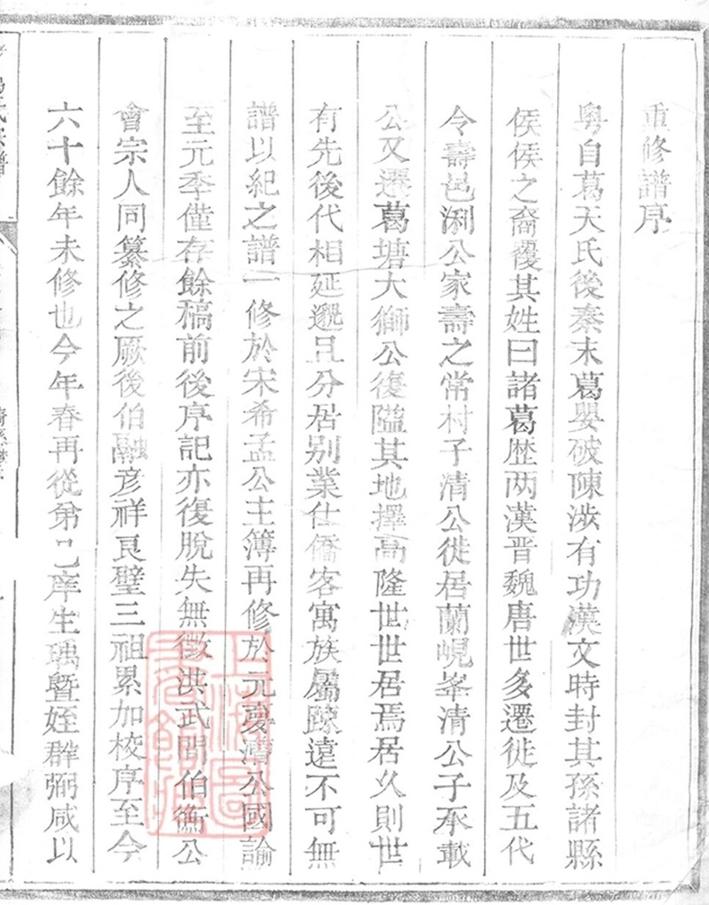 重修譜序
粤自葛天氏後秦末葛嬰破陳涉有功漢文時封其孫諸縣
侯侯之裔覆其姓曰諸葛歴两漢晋魏唐世多遷徙及五代
令壽邑渆公家壽之常村子清公徙居蘭峴峯清公子承載
公又遷葛塘大獅公復隘其地擇高隆世世居焉居久則世
有先後代相延邈且分居别業仕僑客寓族屬踈遠不可無
譜以紀之譜一修於宋希孟公主簿再修於元慶清公國諭
至元季僅存餘稿前後序記亦復脫失無徵洪武間伯衡公
會宗人同纂修之厥後伯融彦祥良璧三祖累加校序至今
六十餘年未修也今年春再從弟庠生瑀暨姪群弼咸以
氏宗譜